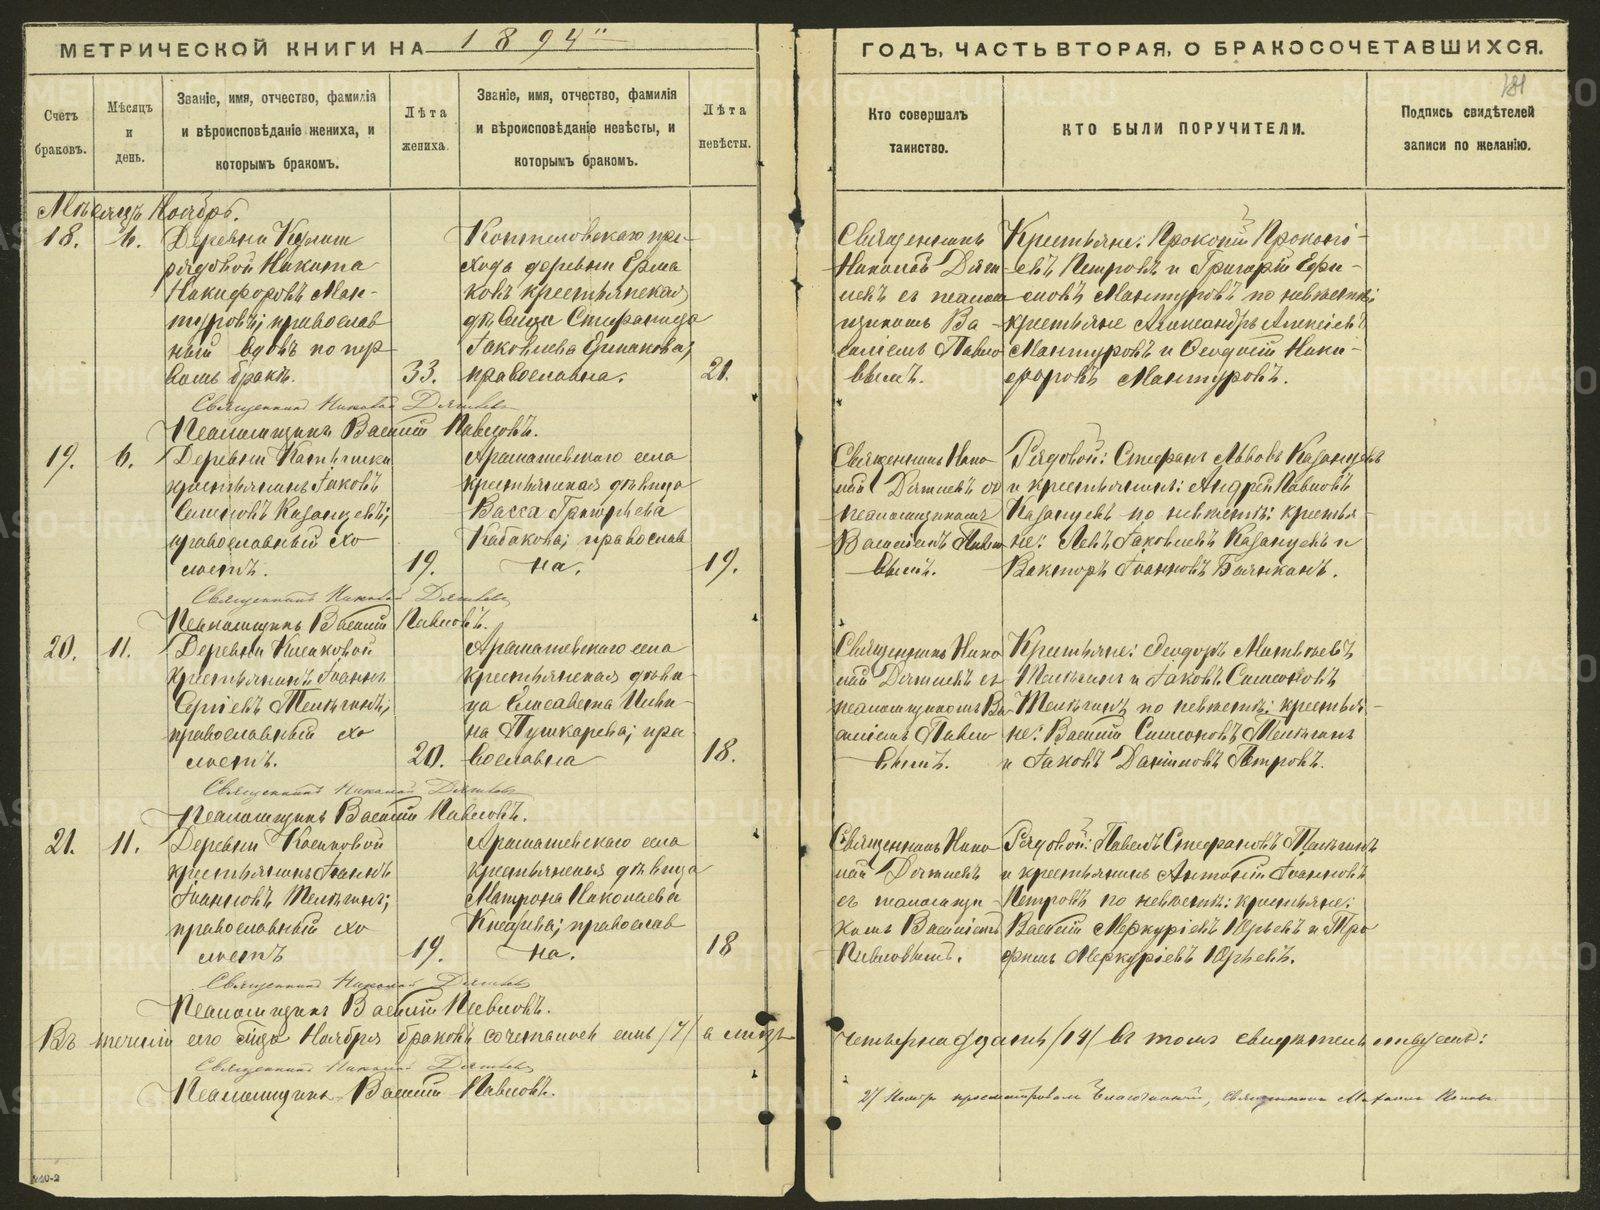 МЕТРИЧЕСКОЙ КНИГИ НА 1894
ГОДЪ, ЧАСТЬ ВТОРАЯ, О БРАКОСОЧЕТАВШИХСЯ.
Счетъ браковъ.
Мѣсяцъ и день.
Званіе, имя, отчество, фамилія
и вѣроисповѣданіе жениха, и
которымъ бракомъ.
Лѣта
жениха.
Званіе, имя, отчество, фамилія
и вѣроисповѣданіе невѣсты, и
которымъ бракомъ.
Лѣта
невѣсты.
Кто совершалъ
таинство.
КТО БЫЛИ ПОРУЧИТЕЛИ.
Подпись свидѣтелей
записи по желанію.
181
Мѣсяцъ Ноябрь.
18.
6.
Деревни
рядовой Никита
Никифоровъ Ман-
туровъ; православ
ный вдовъ по пер
вомъ бракѣ.
33.
при-
хода деревни Ерма
ковъ крестьянская
дѣвица Стефанида
Іаковлева Ермакова;
православна.
21.
Священникъ
Николай
съ псалом
щикомъ Ва-
силіемъ Павло
вымъ.
Крестьяне: Прокопій Прокопі-
евъ Петровъ и Григорій Ефи-
мовъ Мантуровъ по невѣстѣ;
крестьяне Александръ Алексіевъ
Мантуровъ и Ѳеодосій Ники-
форовъ Мантуровъ.
Священникъ Николай
Псаломщикъ Василій Павловъ.
19.
6.
Деревни
крестьянинъ Іаковъ
Симеоновъ Казанцевъ;
православный хо
лостъ.
19.
Арамашевскаго села
крестьянская дѣвица
Васса Григорьева
Кабакова; православ
на.
19.
Священникъ Нико
лай со
псаломщикомъ
Василіемъ Павло
вымъ.
Рядовой: Стефанъ Львовъ Казанцевъ
и крестьянинъ: Андрей Павловъ
Казанцевъ по невѣстѣ: крестья-
не: Левъ Іаковлевъ Казанцевъ и
Викторъ Іоанновъ
Священникъ Николай
Псаломщикъ Василій Павловъ.
20.
11.
Деревни
крестьянинъ Іоаннъ
Сергіевъ Телегинъ;
православный хо
лостъ.
20.
Арамашевскаго села
крестьянская дѣви
ца Елисавета
Пушкарева; пра
вославна
18.
Священникъ Нико
лай съ
псаломщикомъ Ва
силіемъ Павло
вымъ.
Крестьяне: Ѳеодоръ Матвѣевъ
Телегинъ и Іаковъ Симеоновъ
Телегинъ по невѣстѣ: крестья-
не: Василій Симеоновъ Телегинъ
и Іаковъ Даниловъ Петровъ.
Священникъ Николай
Псаломщикъ Василій Павловъ.
21.
11.
Деревни
крестьянинъ Іоаннъ
Іоанновъ Телегинъ;
православный хо
лостъ
19.
Арамашевскаго села
крестьянская дѣвица
Матрона Николаева
православ
на.
18
Священникъ Нико
лай
съ псаломщи
комъ Василіемъ
Павловымъ.
Рядовой: Павелъ Стефановъ Телегинъ
и крестьянинъ Антоній Іоанновъ
Петровъ по невѣстѣ: крестьяне:
Василій Меркуріевъ Юрьевъ и Тро
фимъ Меркуріевъ Юрьевъ.
Священникъ Николай
Псаломщикъ Василій Павловъ.
Въ теченіи сего мѣсяца Ноября браковъ сочеталось семь /7/ а лицъ четырнадцать /14/ въ томъ свидѣтельствуемъ:
Священникъ Николай
Псаломщикъ Василій Павловъ.
благочинный, Священникъ Михаилъ
440-2
METRIKI.GASO-URAL.RU